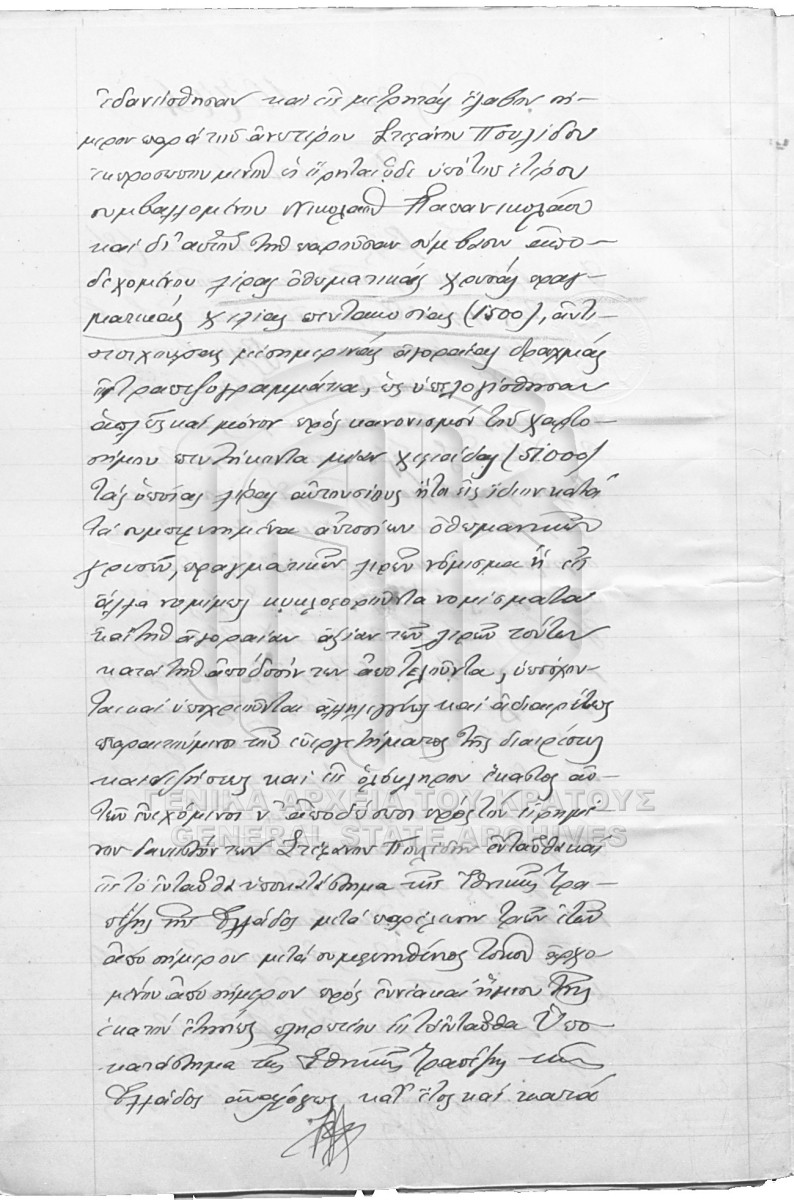 ἐδανείσθησαν καὶ εἰς μετρητὰς ἔλαβον σή-
μερον παρὰ τοῦ ἀνωτέρου Στεφάνου Πουλίδου
ἐκπροσωπουμένου ὡς εἴρηται ὧδε ὑπὸ τοῦ ἑτέρου
συμβαλλομένου Νικολάου Παπανικολάου
καὶ δι' αὐτοῦ τὴν παροῦσαν σύμβασιν ἀπο-
δεχομένου λίρας ὀθωμανικὰς χρυσᾶς πραγ-
ματικὰς χιλίας πεντακοσίας (1500), ἀντι-
στοιχούσας μὲ σημερινὰς ἀγοραίας δραχμὰς
εἰς τραπεζογραμμάτια, ὡς ὑπελογίσθησαν
ἁπλῶς καὶ μόνον πρὸς κανονισμὸν τοῦ χαρτο-
σήμου πεντήκοντα μιᾶν χιλιάδας (51000)
τὰς ὁποίας λίρας αὐτουσίους ἤτοι εἰς ἴδιον κατὰ
τὰ συμπεφωνημένα αὐτουσίων ὀθωμανικῶν
χρυσῶν, πραγματικῶν λιρῶν νόμισμα ἢ εἰς
ἄλλα νομίμως κυκλοφοροῦντα νομίσματα
καὶ τὴν ἀγοραίαν ἀξίαν τῶν λιρῶν τούτων
κατὰ τὴν ἀπόδοσίν των ἀποτελοῦντα, ὑπόσχον-
ται καὶ ὑποχρεοῦνται ἀλληλεγγύως καὶ ἀδιαιρέτως
παραιτούμενοι τοῦ εὐεργετήματος τῆς διαιρέσεως
καὶ διζήσεως καὶ εἰς ὁλόκληρον ἕκαστος αὐ-
τῶν ἐνεχόμενοι ν' ἀποδώσωσι πρὸς τὸν εἰρημέ-
νον δανειστήν των Στέφανον Πουλίδην ἐνταῦθα καὶ
εἰς τὸ ἐνταῦθα ὑποκατάστημα τῆς Ἐθνικῆς Τρα-
πέζης τῆς Ἑλλάδος μετὰ παρέλευσιν τριῶν ἐτῶν
ἀπὸ σήμερον μετὰ συμφωνηθέντος τόκου ἀρχο-
μένου ἀπὸ σήμερον πρὸς ἐννέα καὶ ἥμισυ τοῖς
ἑκατὸν ἐτησίως πληρωτέου εἰς τὸ ἐνταῦθα Ὑπο-
κατάστημα τῆς Ἐθνικῆς Τραπέζης τῆς
Ἑλλάδος ἀναλόγως κατ' ἔτος καὶ κατὰ
ΓΕΝΙΚΑ ΑΡΧΕΙΑ ΤΟΥ ΚΡΑΤΟΥΣ
GENERAL STATE ARCHIVES